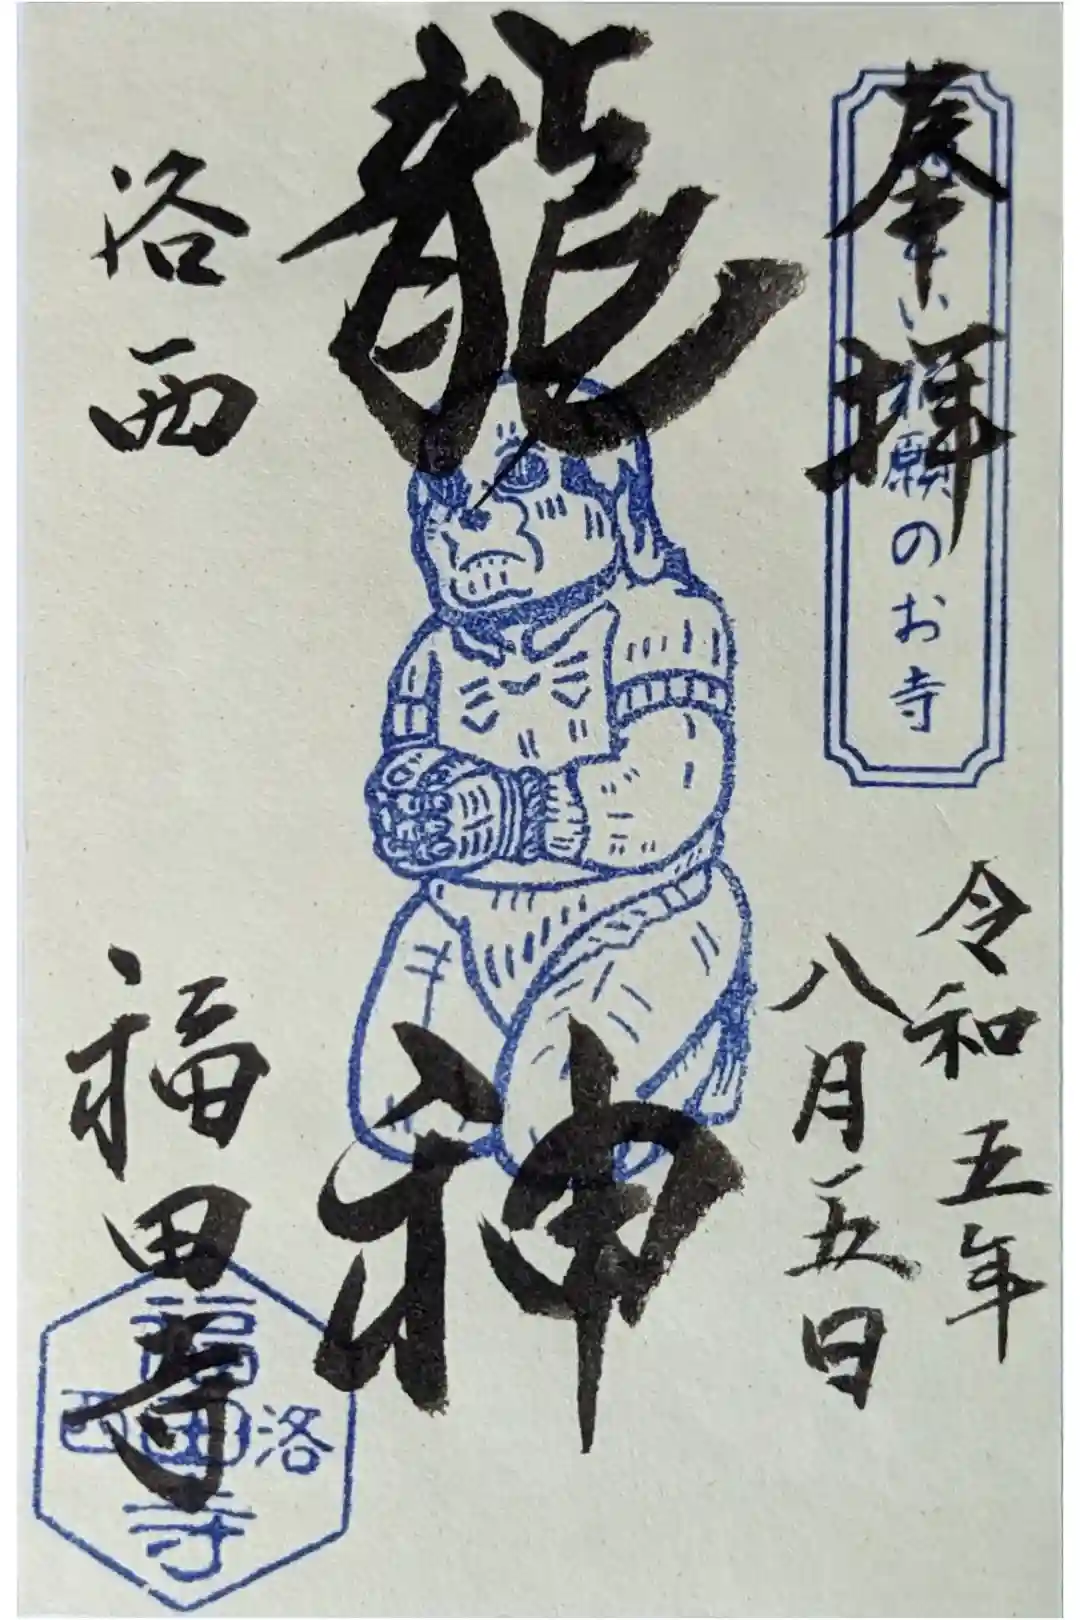 奉拝
い祈願のお寺
令和五年
八月五日
龍神
洛西
福田寺
洛西
福田寺